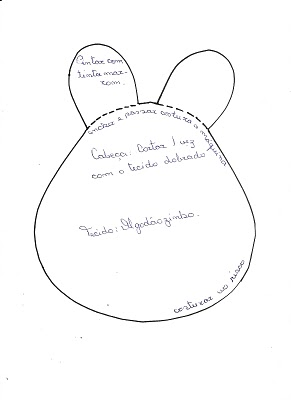 Pintar com
tinta mar-
rom.
encher e passar costura a máquina
Cabeça: Cortar 1 vez
com o tecido dobrado
Tecido: Algodãozinho.
costurar no risco